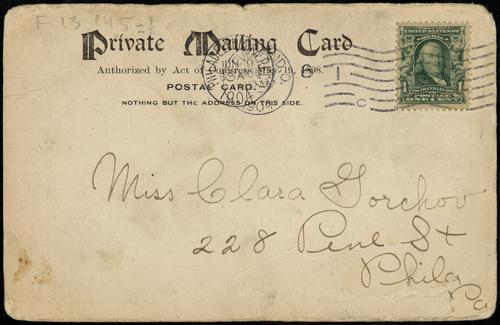 F 13 845-1
Private Mailing Card
Authorized by Act of Congress May 19, 1898.
POSTAL CARD.
NOTHING BUT THE ADDRESS ON THIS SIDE.
1904
C
UNITED STATES OF
POSTAGE
ONE CENT
Miss Clara Gorchov
228 Pene St
Phila
Pa